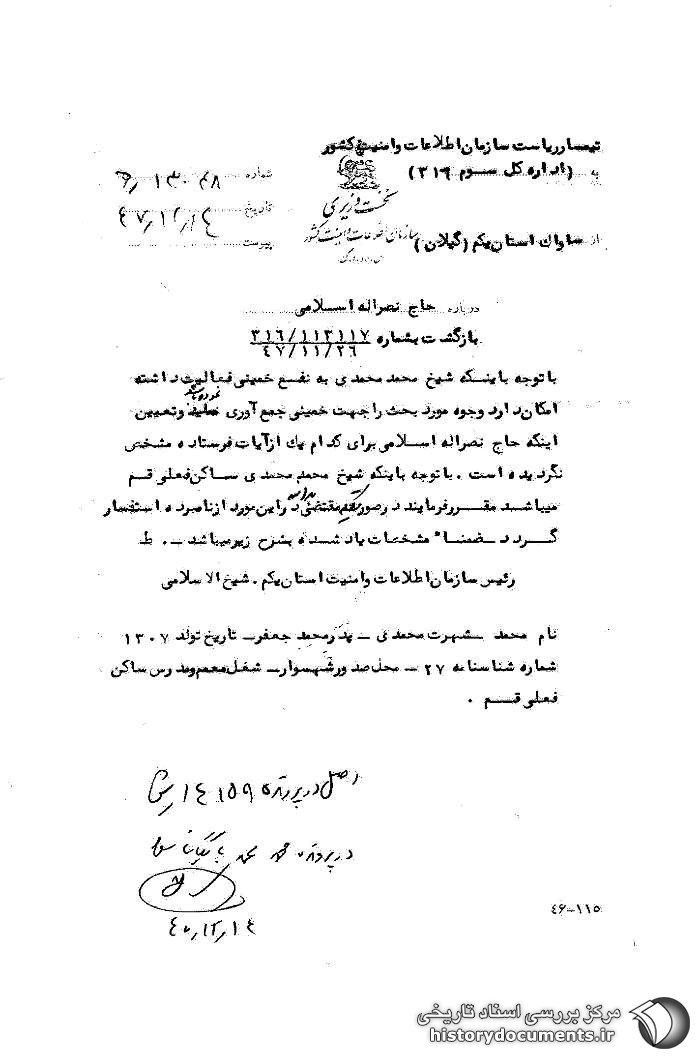 تیمسار ریاست سازمان اطلاعات و امنیت کشور
به (اداره کل سوم ۳۱۶)
شماره
تاریخ ۴۷/۱۲/۱۴
پیوست
نخست وزیری
سازمان اطلاعات و امنیت کشور
از ساواک استان یکم (گیلان)
درباره حاج نصراله اسلامی
بازگشت بشماره ۳۱۶/۱۱۳۱۱۷
۴۷/۱۱/۲۶
با توجه باینکه شیخ محمد محمدی به نفع خمینی فعالیت داشته
امکان دارد وجوه مورد بحث را جهت خمینی جمع آوری نموده باشد و تعیین
اینکه حاج نصراله اسلامی برای کدام یک از آیات فرستاده مشخص
نگردیده است . با توجه باینکه شیخ محمد محمدی ساکن فعلی قم
میباشد مقرر فرمایند در صورتیکه مقتضی بدانند در این مورد از نامبرده استفسار
گردد ـ ضمناً مشخصات یاد شده بشرح زیر میباشد ـ. ط
رئیس سازمان اطلاعات و امنیت استان یکم . شیخ الاسلامی
نام محمد ـ شهرت محمدی ـ پدر محمد جعفر ـ تاریخ تولد ۱۳۰۷
شماره شناسنامه ۲۷ ـ محل صدور شهسوار ـ شغل معمم و مدرس ساکن
فعلی قم .
اصل در پرونده ۱۴۱۵۹
در پرونده محمد محمدی بایگانی شود
۱۲/۱۴
۴۶-۱۱۵
مرکز بررسی اسناد تاریخی
historydocuments.ir